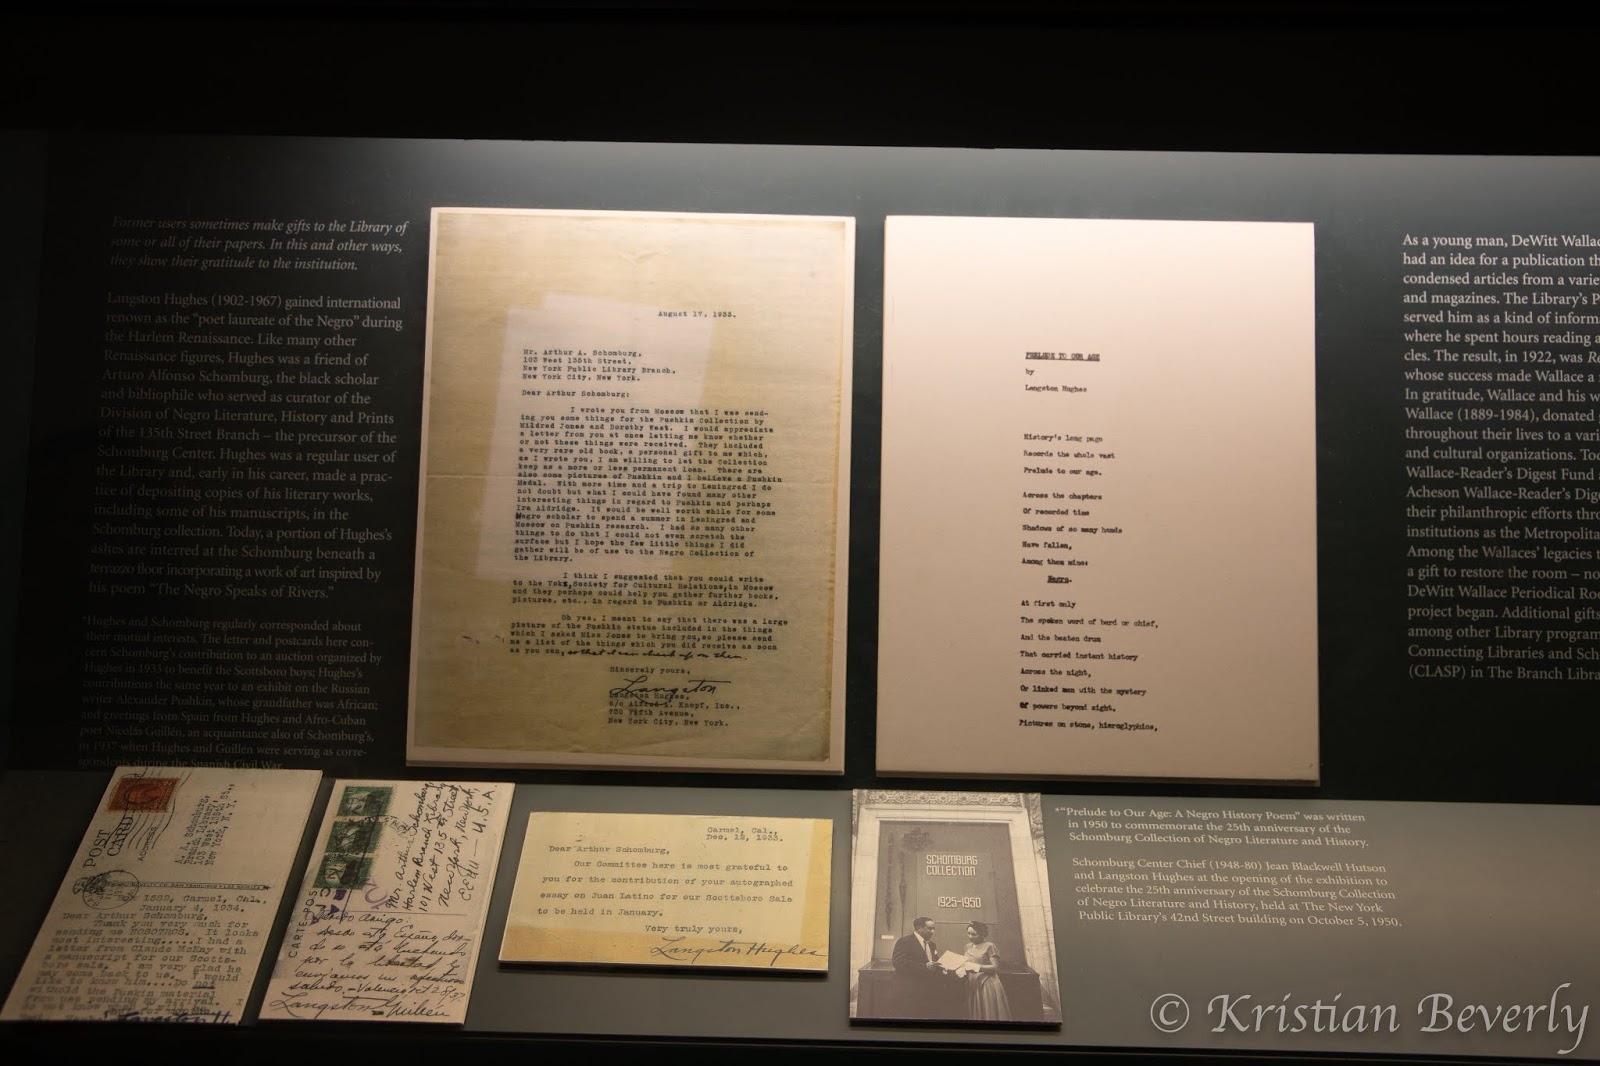 Former users sometimes make gifts to the Library of
some or all of their papers. In this and other ways,
they show their gratitude to the institution.
Langston Hughes (1902-1967) gained international
renown as the "poet laureate of the Negro" during
the Harlem Renaissance. Like many other
Renaissance figures, Hughes was a friend of
Arturo Alfonso Schomburg, the black scholar
and bibliophile who served as curator of the
Division of Negro Literature, History and Prints
of the 135th Street Branch – the precursor of the
Schomburg Center. Hughes was a regular user of
the Library and, early in his career, made a prac-
tice of depositing copies of his literary works,
including some of his manuscripts, in the
Schomburg collection. Today, a portion of Hughes's
ashes are interred at the Schomburg beneath a
terrazzo floor incorporating a work of art inspired by
his poem "The Negro Speaks of Rivers."
*Hughes and Schomburg regularly corresponded about
their mutual interests. The letter and postcards here con-
cern Schomburg's contribution to an auction organized by
Hughes in 1933 to benefit the Scottsboro boys; Hughes's
contributions the same year to an exhibit on the Russian
writer Alexander Pushkin, whose grandfather was African;
and greetings from Spain from Hughes and Afro-Cuban
poet Nicolás Guillén, an acquaintance also of Schomburg's,
in 1937 when Hughes and Guillén were serving as corre-
spondents during the Spanish Civil War.
August 17, 1933.
Mr. Arthur A. Schomburg,
103 West 135th Street,
New York Public Library Branch,
New York City, New York.
Dear Arthur Schomburg:
I wrote you from Moscow that I was send-
ing you some things for the Pushkin Collection by
Mildred Jones and Dorothy West. I would appreciate
a letter from you at once letting me know whether
or not these things were received. They included
a very rare old book, a personal gift to me which,
as I wrote you, I am willing to let the Collection
keep as a more or less permanent loan. There are
also some pictures of Pushkin and I believe a Pushkin
Medal. With more time and a trip to Leningrad I do
not doubt but what I could have found many other
interesting things in regard to Pushkin and perhaps
Ira Aldridge. It would be well worth while for some
Negro scholar to spend a summer in Leningrad and
Moscow on Pushkin research. I had so many other
things to do that I could not even scratch the
surface but I hope the few little things I did
gather will be of use to the Negro Collection of
the Library.
I think I suggested that you could write
to the Voks, Society for Cultural Relations, in Moscow
and they perhaps could help you gather further books,
pictures, etc., in regard to Pushkin or Aldridge.
Oh yes, I meant to say that there was a large
picture of the Pushkin statue included in the things
which I asked Miss Jones to bring you, so please send
me a list of the things which you did receive as soon
as you can, so that I can check up on them.
Sincerely yours,
Langston
Langston Hughes,
c/o Alfred A. Knopf, Inc.,
730 Fifth Avenue,
New York City, New York.
PRELUDE TO OUR AGE
by
Langston Hughes
History's long page
Records the whole vast
Prelude to our age.
Across the chapters
Of recorded time
Shadows of so many hands
Have fallen,
Among them mine:
Negro.
At first only
The spoken word of bard or chief,
And the beaten drum
That carried instant history
Across the night,
Or linked man with the mystery
Of powers beyond sight,
Pictures on stone, hieroglyphics,
As a young man, DeWitt Wallac
had an idea for a publication th
condensed articles from a varie
and magazines. The Library's P
served him as a kind of inform
where he spent hours reading a
cles. The result, in 1922, was Re
whose success made Wallace a
In gratitude, Wallace and his w
Wallace (1889-1984), donated
throughout their lives to a vari
and cultural organizations. Tod
Wallace-Reader's Digest Fund
Acheson Wallace-Reader's Dige
their philanthropic efforts thro
institutions as the Metropolita
Among the Wallaces' legacies t
a gift to restore the room – no
DeWitt Wallace Periodical Roo
project began. Additional gifts
among other Library program
Connecting Libraries and Sch
(CLASP) in The Branch Libra
POST CARD
ADDRESS
A. A. Schomburg,
Branch Library,
103 West 135th St.,
New York, N. Y.
Box 1582, Carmel, Cal.
January 4, 1934.
Dear Arthur Schomburg,
Thank you very much for
sending me NOSOTROS. It looks
most interesting.....I had a
letter from Claude McKay with
a manuscript for our Scotts-
boro sale. I am very glad he
may come back to us. I would
like to know him....Do not
withold the Puskin material
CARTE POS
Mr. Arthur Schomburg
Harlem Branch Library
West 135th Street
New York, New York,
U.S.A.
Langston Guillén
Carmel, Cal.,
Dec. 12, 1933.
Dear Arthur Schomburg,
Our Committee here is most grateful to
you for the contribution of your autographed
essay on Juan Latino for our Scottsboro Sale
to be held in January.
Very truly yours,
Langston Hughes
SCHOMBURG
COLLECTION
1925-1950
*"Prelude to Our Age: A Negro History Poem" was written
in 1950 to commemorate the 25th anniversary of the
Schomburg Collection of Negro Literature and History.
Schomburg Center Chief (1948-80) Jean Blackwell Hutson
and Langston Hughes at the opening of the exhibition to
celebrate the 25th anniversary of the Schomburg Collection
of Negro Literature and History, held at The New York
Public Library's 42nd Street building on October 5, 1950.
© Kristian Beverly